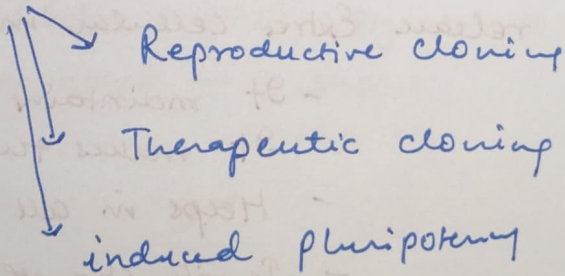 Reproductive cloning
Therapeutic cloning
induced pluripotency